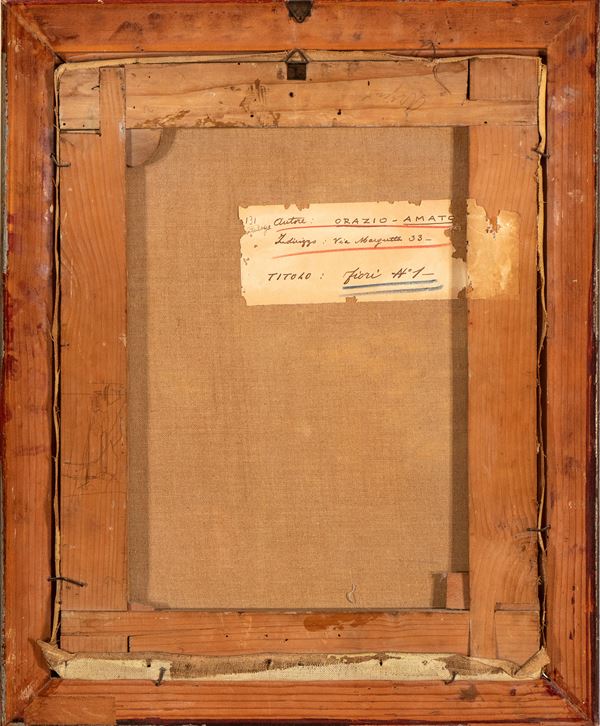 131
Autore: ORAZIO - AMATO
Indirizzo: Via Margutta 33 -
TITOLO: Fiori N° 1 -